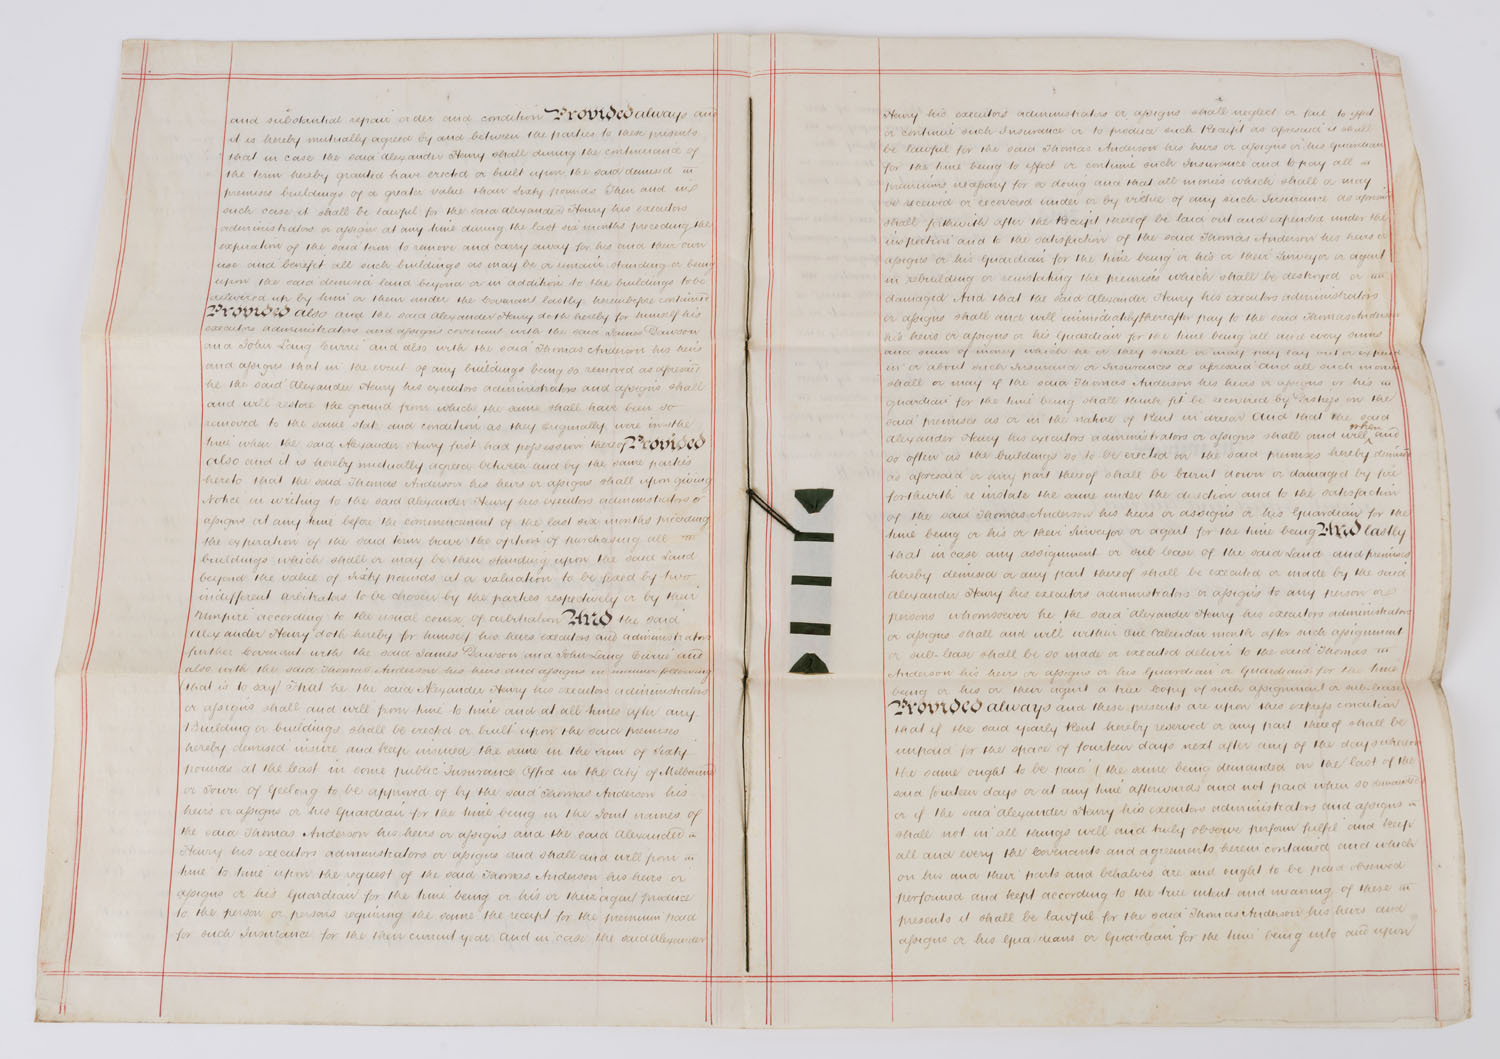 and substantial repair order and condition Provided always and
it is hereby mutually agreed by and between the parties to these presents
that in case the said Alexander Henry shall during the continuance of
the term hereby granted have erected or built upon the said demised
premises buildings of a greater value than Sixty pounds Then and in
such case it shall be lawful for the said Alexander Henry his executors
administrators or assigns at any time during the last six months preceding the
expiration of the said term to remove and carry away for his and their own
use and benefit all such buildings as may be or remain standing or being
upon the said demised land beyond or in addition to the buildings to be
delivered up by him or them under the Covenant lastly hereinbefore contained
Provided also and the said Alexander Henry doth hereby for himself his
executors administrators and assigns covenant with the said James Dawson
and John Lang Currie and also with the said Thomas Anderson his heirs
and assigns that in the event of any buildings being so removed as aforesaid
he the said Alexander Henry his executors administrators and assigns shall
and will restore the ground from which the same shall have been so
removed to the same state and condition as they originally were in at the
time when the said Alexander Henry first had possession thereof Provided
also and it is hereby mutually agreed between and by the same parties
hereto that the said Thomas Anderson his heirs or assigns shall upon giving
Notice in writing to the said Alexander Henry his executors administrators or
assigns at any time before the commencement of the last six months preceding
the expiration of the said term have the option of purchasing all
buildings which shall or may be then standing upon the said Land
beyond the value of Sixty pounds at a valuation to be fixed by two
indifferent arbitrators to be chosen by the parties respectively or by their
Umpire according to the usual course of arbitration And the said
Alexander Henry doth hereby for himself his heirs executors and administrators
further Covenant with the said James Dawson and John Lang Currie and
also with the said Thomas Anderson his heirs and assigns in manner following
(that is to say) That he the said Alexander Henry his executors administrators
or assigns shall and will from time to time and at all times after any
Building or buildings shall be erected or built upon the said premises
hereby demised insure and keep insured the same in the Sum of Sixty
pounds at the least in some public Insurance Office in the City of Melbourne
or Town of Geelong to be approved of by the said Thomas Anderson his
heirs or assigns or his Guardian for the time being in the Joint names of
the said Thomas Anderson his heirs or assigns and the said Alexander
Henry his executors administrators or assigns and shall and will from
time to time upon the request of the said Thomas Anderson his heirs or
assigns or his Guardian for the time being or his or their agent produce
to the person or persons requiring the same the receipt for the premium paid
for such Insurance for the then current year And in case the said Alexander
Henry his executors administrators or assigns shall neglect or fail to effect
or continue such Insurance or to produce such Receipt as aforesaid it shall
be lawful for the said Thomas Anderson his heirs or assigns or his Guardian
for the time being to effect or continue such Insurance and to pay all
premiums necessary for so doing and that all monies which shall or may
be received or recovered under or by virtue of any such Insurance as aforesaid
shall forthwith after the Receipt thereof be laid out and expended under the
inspection and to the satisfaction of the said Thomas Anderson his heirs or
assigns or his Guardian for the time being or his or their Surveyor or agent
in rebuilding or reinstating the premises which shall be destroyed or
damaged And that the said Alexander Henry his executors administrators
or assigns shall and will immediately thereafter pay to the said Thomas Anderson
his heirs or assigns or his Guardian for the time being all and every sums
and sum of money which he or they shall or may pay lay out or expend
in or about such Insurance or Insurances as aforesaid and all such monies
shall or may if the said Thomas Anderson his heirs or assigns or his
guardian for the time being shall think fit be recovered by Distress on the
said premises as or in the nature of Rent in arrear And that the said
Alexander Henry his executors administrators or assigns shall and will when and
so often as the buildings so to be erected on the said premises hereby demised
as aforesaid or any part thereof shall be burnt down or damaged by fire
forthwith re instate the same under the direction and to the satisfaction
of the said Thomas Anderson his heirs or assigns or his Guardian for the
time being or his or their Surveyor or agent for the time being And lastly
that in case any assignment or sub lease of the said Land and premises
hereby demised or any part thereof shall be executed or made by the said
Alexander Henry his executors administrators or assigns to any person or
persons whomsoever he the said Alexander Henry his executors administrators
or assigns shall and will within One Calendar month after such assignment
or sub-lease shall be so made or executed deliver to the said Thomas
Anderson his heirs or assigns or his Guardian or Guardians for the time
being or his or their agent a true Copy of such assignment or sub-lease
Provided always and these presents are upon this express condition
that if the said yearly Rent hereby reserved or any part thereof shall be
unpaid for the space of fourteen days next after any of the days whereon
the same ought to be paid (the same being demanded on the last of the
said fourteen days or at any time afterwards and not paid when so demanded
or if the said Alexander Henry his executors administrators and assigns
shall not in all things well and truly observe perform fulfil and keep
all and every the Covenants and agreements herein contained and which
on his and their parts and behalves are and ought to be paid observed
performed and kept according to the true intent and meaning of these
presents it shall be lawful for the said Thomas Anderson his heirs and
assigns or his Guardians or Guardian for the time being into and upon